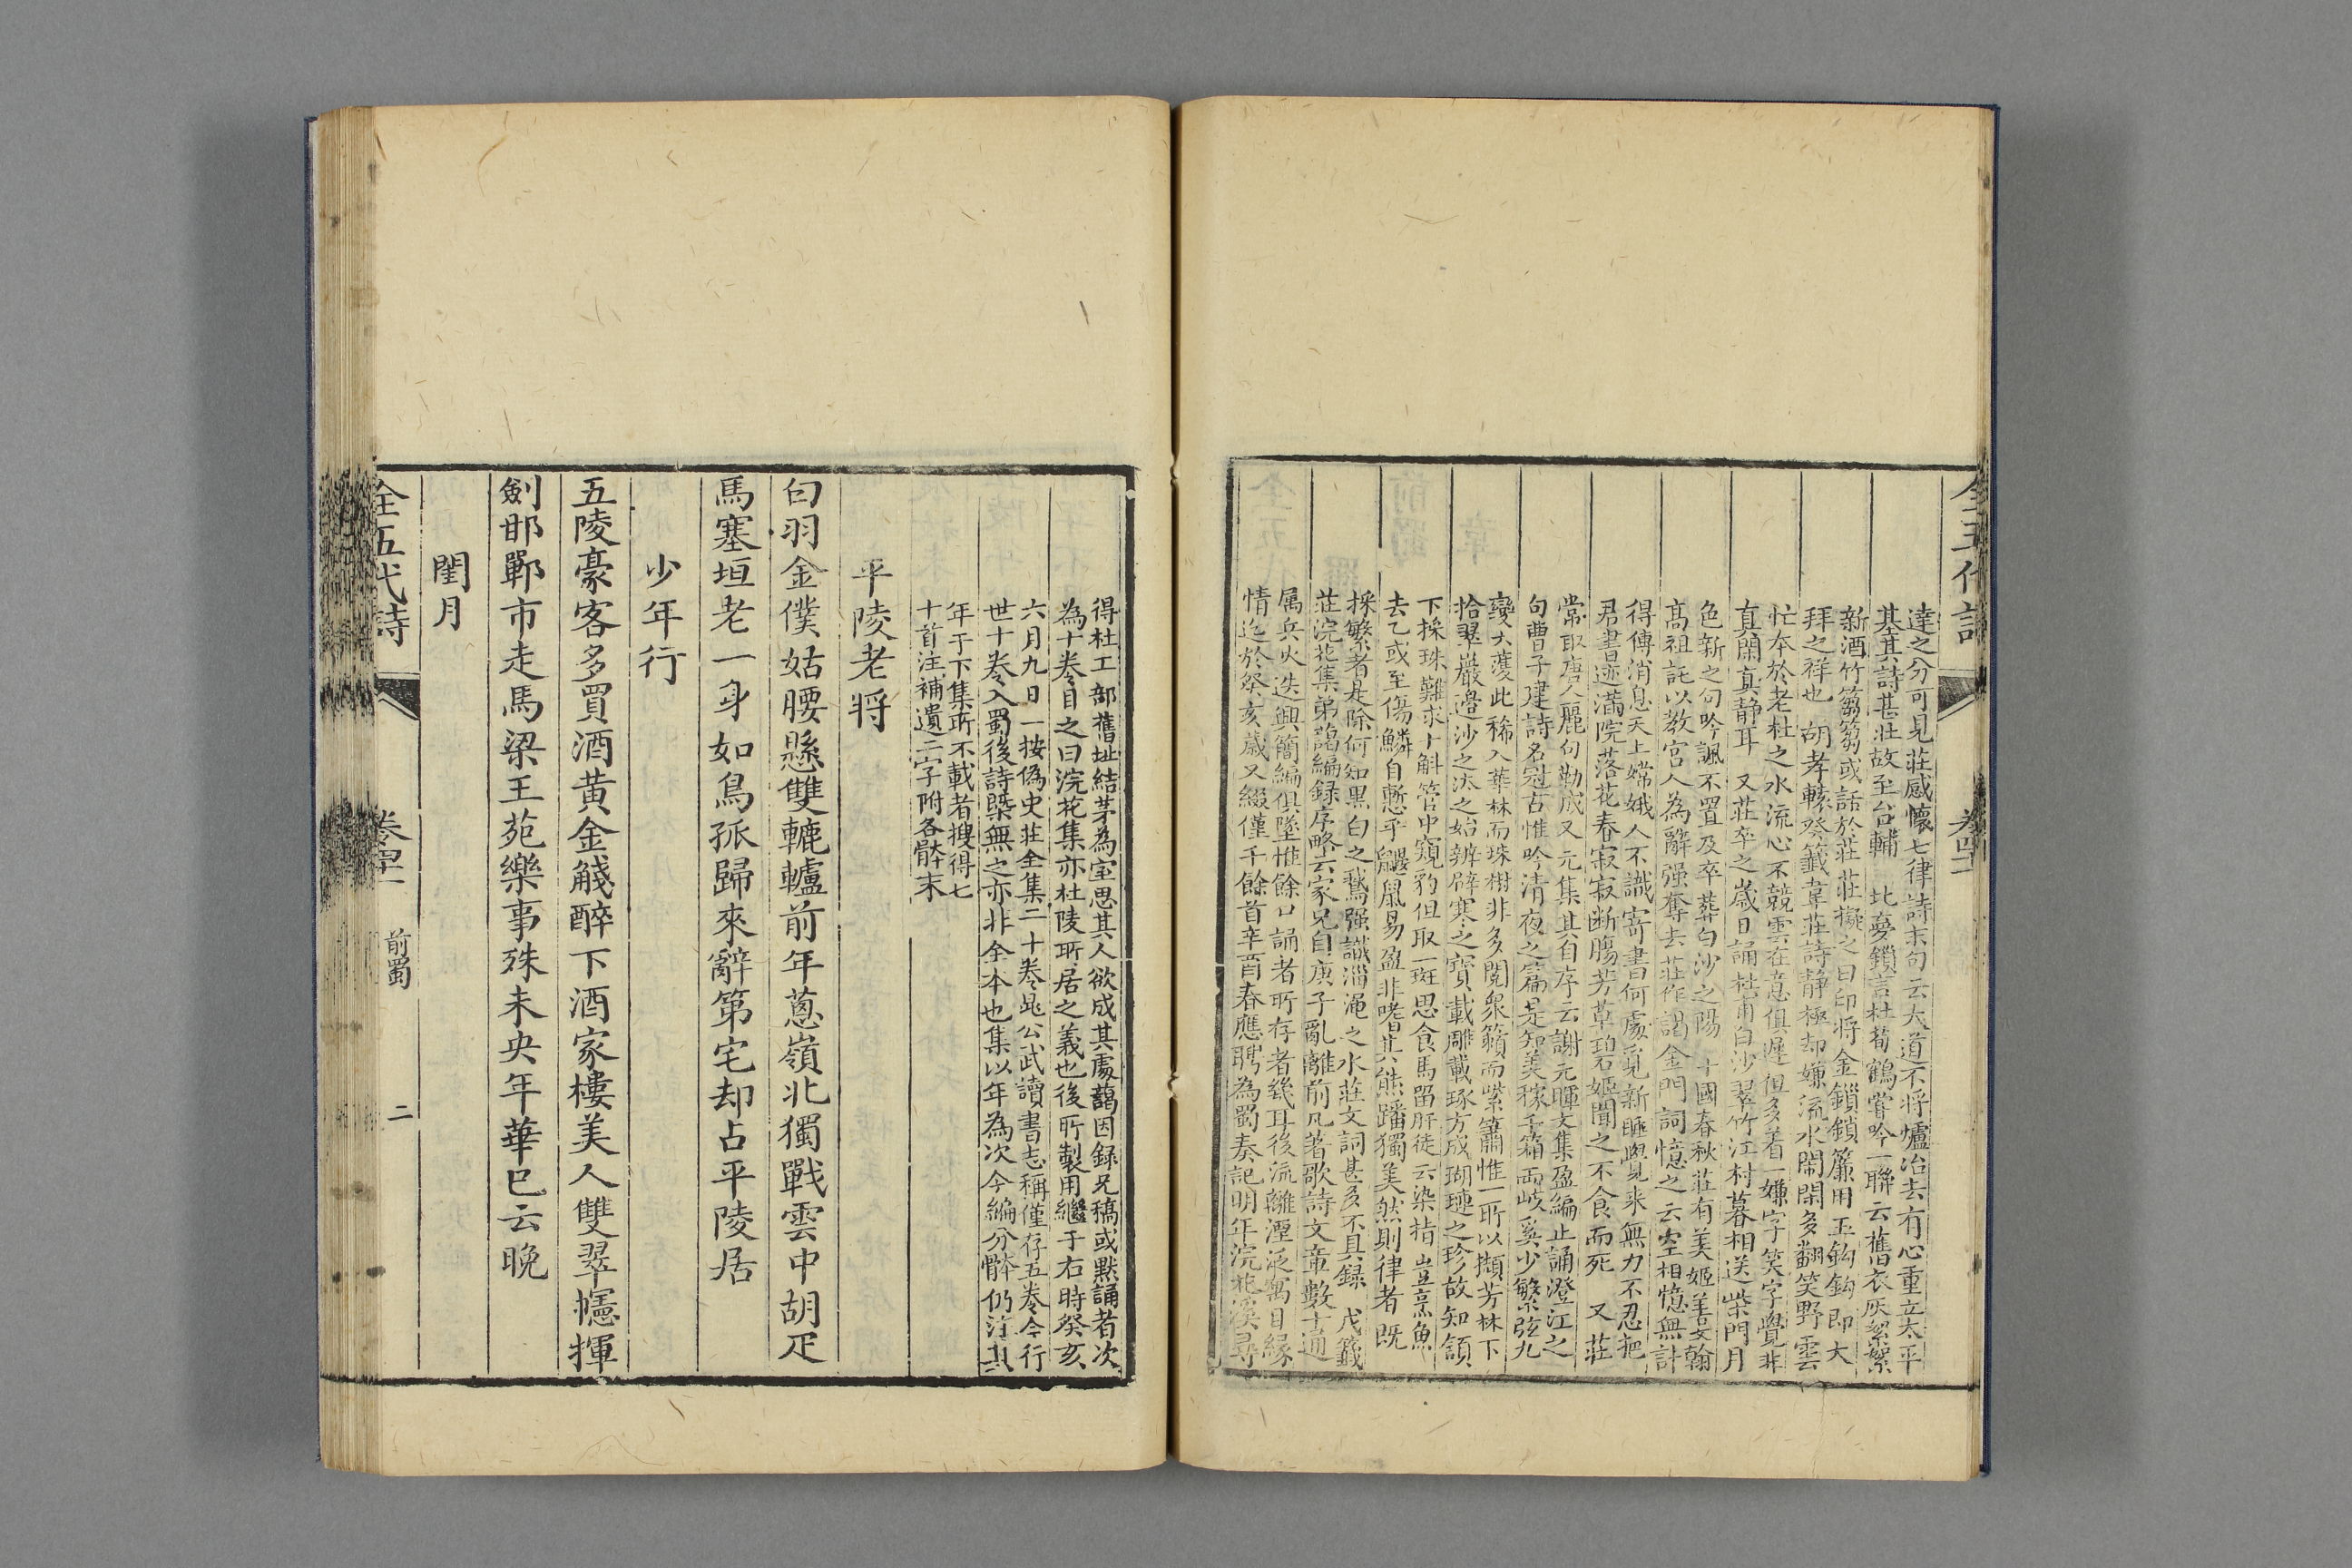 全五代詩
卷四十一
達之分可見莊感懷七律詩末句云大道不將爐冶去有心重立太平
基其詩甚壯故至台輔 北夢鎖言杜荀鶴嘗吟一聯云舊衣灰絮絮
新酒竹篘篘或話於莊莊擬之曰印将金鎖鎖簾用玉鈎鈎即大
拜之祥也 胡孝轅癸籖韋莊詩静極却嫌流水閙閑多翻笑野雲
忙本於老杜之水流心不競雲在意俱遲但多着一嫌字笑字覺非
真閑真静耳 又莊卒之歲日誦杜甫白沙翠竹江村暮相送柴門月
色新之句吟諷不置及卒葬白沙之陽 十國春秋莊有美姬善文翰
髙祖託以教宫人為辭强奪去莊作謁金門詞憶之云空相憶無計
得傳消息天上嫦娥人不識寄書何處覓新睡覺來無力不忍把
君書迹滿院落花春寂寂断膓芳草碧姬聞之不食而死 又莊
常取唐人麗句勒成又元集其自序云謝元暉文集盈編止誦澄江之
句曹子建詩名冠古惟吟清夜之篇是知美稼千箱兩岐奚少繁弦九
變大濩此稀入華林而珠樹非多閱衆籟而紫簫惟一所以擷芳林下
拾翠巖邉沙之汰之始辨辟寒之寳載雕載琢方成瑚璉之珍故知頷
下採珠難求十斛管中窺豹但取一斑思食馬留肝徒云染指豈烹魚
去乙或至傷鱗自慙乎鼴鼠易盈非嗜其熊蹯獨美然則律者既
採繁者是除何知黑白之鵞强識淄澠之水莊文詞甚多不具録 戊籖
莊浣花集弟藹編録序略云家兄自庚子亂離前凡著歌詩文章數十通
属兵火迭興簡編俱墜惟餘口誦者所存者幾耳後流離漂泛寓目縁
情迨於癸亥歲又綴僅千餘首辛酉春應聘為蜀奏記明年浣花溪尋
得杜工部舊址結茅為室思其人欲成其處藹因録兄稿或默誦者次
為十卷目之曰浣花集亦杜陵所居之義也後所製用繼于右時癸亥
六月九日 按偽史莊全集二十卷晁公武讀書志稱僅存五卷今行
世十卷入蜀後詩槩無之亦非全本也集以年為次今編分骵仍注其
年于下集所不載者搜得七
十首注補遺二字附各骵末
平陵老将
白羽金僕姑腰懸雙轆轤前年蔥嶺北獨戰雲中胡疋
馬塞垣老一身如鳥孤歸來辭第宅却占平陵居
少年行
五陵豪客多買酒黄金觴醉下酒家樓美人雙翠幰揮
劍邯鄲市走馬梁王苑樂事殊未央年華已云晚
閏月
全五代詩
卷四十一
前蜀
二